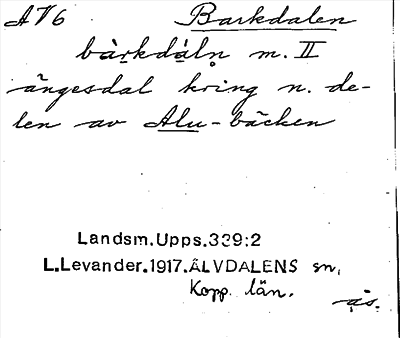 AV6 Barkdalen
bàrkdáln m. II
ängesdal kring n. de-
len av Alu-bäcken
Landsm.Upps.339:2
L.Levander.1917.ÄLVDALENS sn,
Kopp. län.
ås.